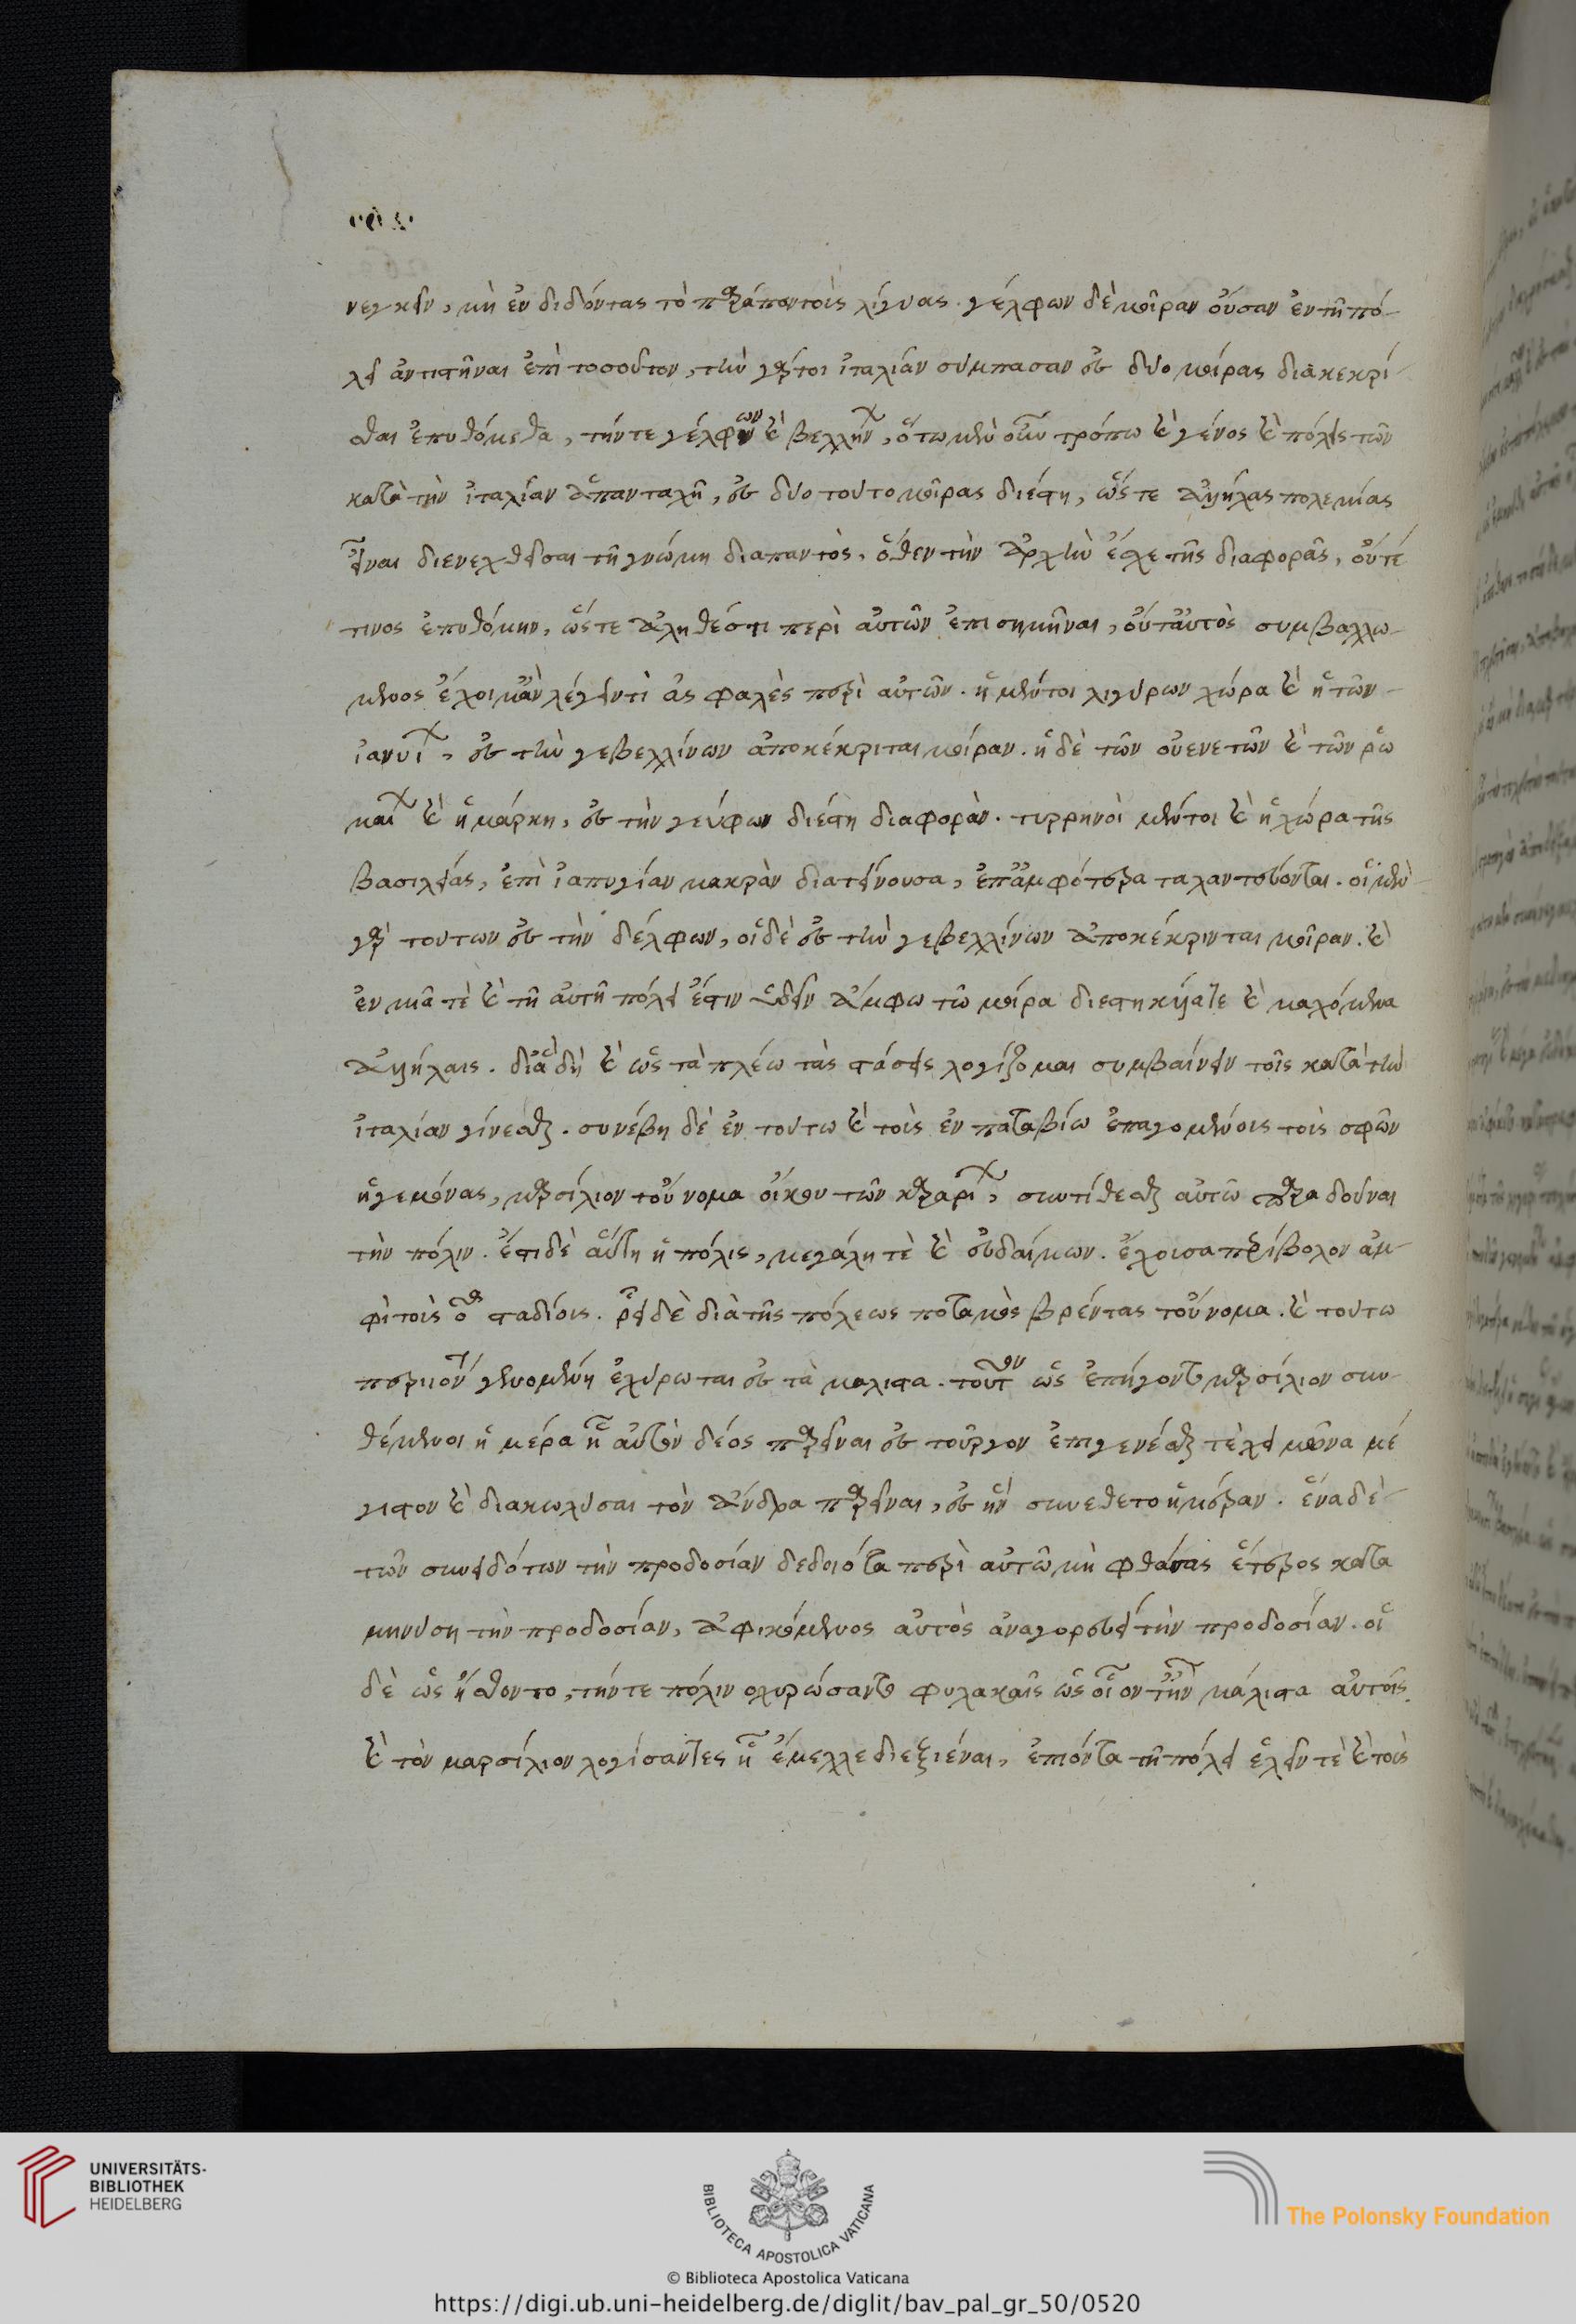 νεγκεῖν, μὴ ἐνδιδόντας τὸ παράπαν τοῖς λίγυας. γέλφων δὲ μοῖραν οὖσαν ἐν τῇ πό-
λει ἀντιστῆναι ἐπὶ τοσοῦτον, τὴν γάρτοι ἰταλίαν σύμπασαν ἐς δύο μοίρας διακεκρί-
σθαι ἐπυθόμεθα, τήντε γέλφων καὶ βελλην, ὅτω μὲν οὖν τρόπω καὶ γένος καὶ πόλεις τῶν
κατὰ τὴν ἰταλίαν ἁπανταχῆ, ἐς δύο τούτο μοίρας διέστη, ὥστε ἀλλήλας πολεμίας
εἶναι διενεχθεῖσαι τῇ γνώμη διαπαντὸς, ὅθεν τὴν ἀρχὴν ἔσχε τῆς διαφορᾶς, οὔτέ
τινος ἐπυθόμην, ὥστε ἀληθέστι περὶ αὐτῶν ἐπισημῆναι, οὔτ αὐτὸς συμβαλλω-
μενος ἔχοιμ ἂν λέγειν τὶ ἀσφαλὲς περὶ αὐτῶν. ἡ μέντοι λιγύρων χώρα καὶ ἡ τῶν
ἰανυΐ, ἐς τὴν γεβελλίνων ἀποκέκριται μοίραν. ἡ δὲ τῶν οὐενετῶν καὶ τῶν ῥω
μαι καὶ ἡ μάρκη, ἐς τὴν γεύφων διέστη διαφορὰν. τυρρηνοὶ μέντοι καὶ ἡ χώρα τῆς
βασιλείας, ἐπὶ ἰαπυγίαν μακρὰν διατείνουσα, ἐπ ἀμφότερα ταλαντεύονται. οἱ μὲν
γὰρ τούτων ἐς τὴν δέλφων, οἱ δὲ ἐς τὴν γεβελλίνων ἀποκέκρινται μοῖραν. καὶ
ἐν μιᾶ τὲ καὶ τῇ αὐτῇ πόλει ἔστιν ἰδεῖν ἄμφω τὼ μοίρα διεστηκυίατε καὶ μαχόμενα
ἀλλήλαις. διὰ δὴ καὶ ὡς τὰ πλέω τὰς στάσεις λογίζομαι συμβαίνειν τοῖς κατὰ τὴν
ἰταλίαν γίνεσθαι. συνέβη δὲ ἐν τούτω καὶ τοὶς ἐν παταβίω ἐπαγομένοις τοὶς σφῶν
ἡγεμόνας, μαρσίλιον τοὔνομα οἴκου τῶν καραρι, συντίθεσθαι αὐτῶ παραδούναι
τὴν πόλιν. ἔστι δὲ αὕτη ἡ πόλις, μεγάλη τὲ καὶ εὐδαίμων. ἔχοισα περίβολον ἀμ-
φὶ τοὶς ο σταδίοις. ῥεῖ δὲ διὰ τῆς πόλεως ποταμὸς βρέντας τοὔνομα. καὶ τούτω
γενομένη ἐχύρωται ἐς τὰ μάλιστα. τοῦτον ὡς ἐπήγοντο μαρσίλιον συν-
θέμενοι ἡμέρα ᾗ αὐτὸν δέος παρεῖναι ἐς τοὖργον ἐπιγενέσθαι τὲ χειμῶνα μέ
γιστον καὶ διακωλύσαι τὸν ἄνδρα παρεῖναι, ἐς ἣν συνέθετο ἡμέραν. ἕνα δὲ
τῶν συνειδότων τὴν προδοσίαν δεδοιότα περὶ αὐτῶ μὴ φθάσας ἕτερος κατα
μηνύση τὴν προδοσίαν, ἀφικόμενος αὐτὸς ἀναγορεύει τὴν προδοσίαν. οἱ
δὲ ὡς ἤσθοντο, τήντε πόλιν ὀχυρώσαντο φυλακαῖς ὡς οἷον τ ἦν μάλιστα αὐτοῖς.
καὶ τὸν μαρσίλιον λογίσαντες ᾗ ἔμελλε διεξιέναι, ἐπιόντα τῇ πόλει ἑλεῖν τὲ καὶ τοὺς
UNIVERSITÄTS-
BIBLIOTHEK
HEIDELBERG
BIBLIOTECA APOSTOLICA VATICANA
The Polonsky Foundation
© Biblioteca Apostolica Vaticana
https://digi.ub.uni-heidelberg.de/diglit/bav_pal_gr_50/0520